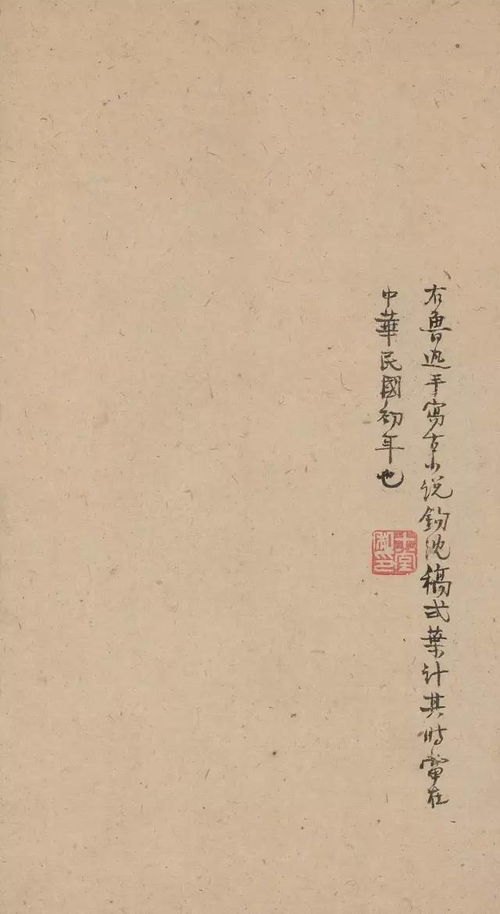 右魯迅手寫古小說鈎沈稿弍葉計其時當在
中華民國初年也